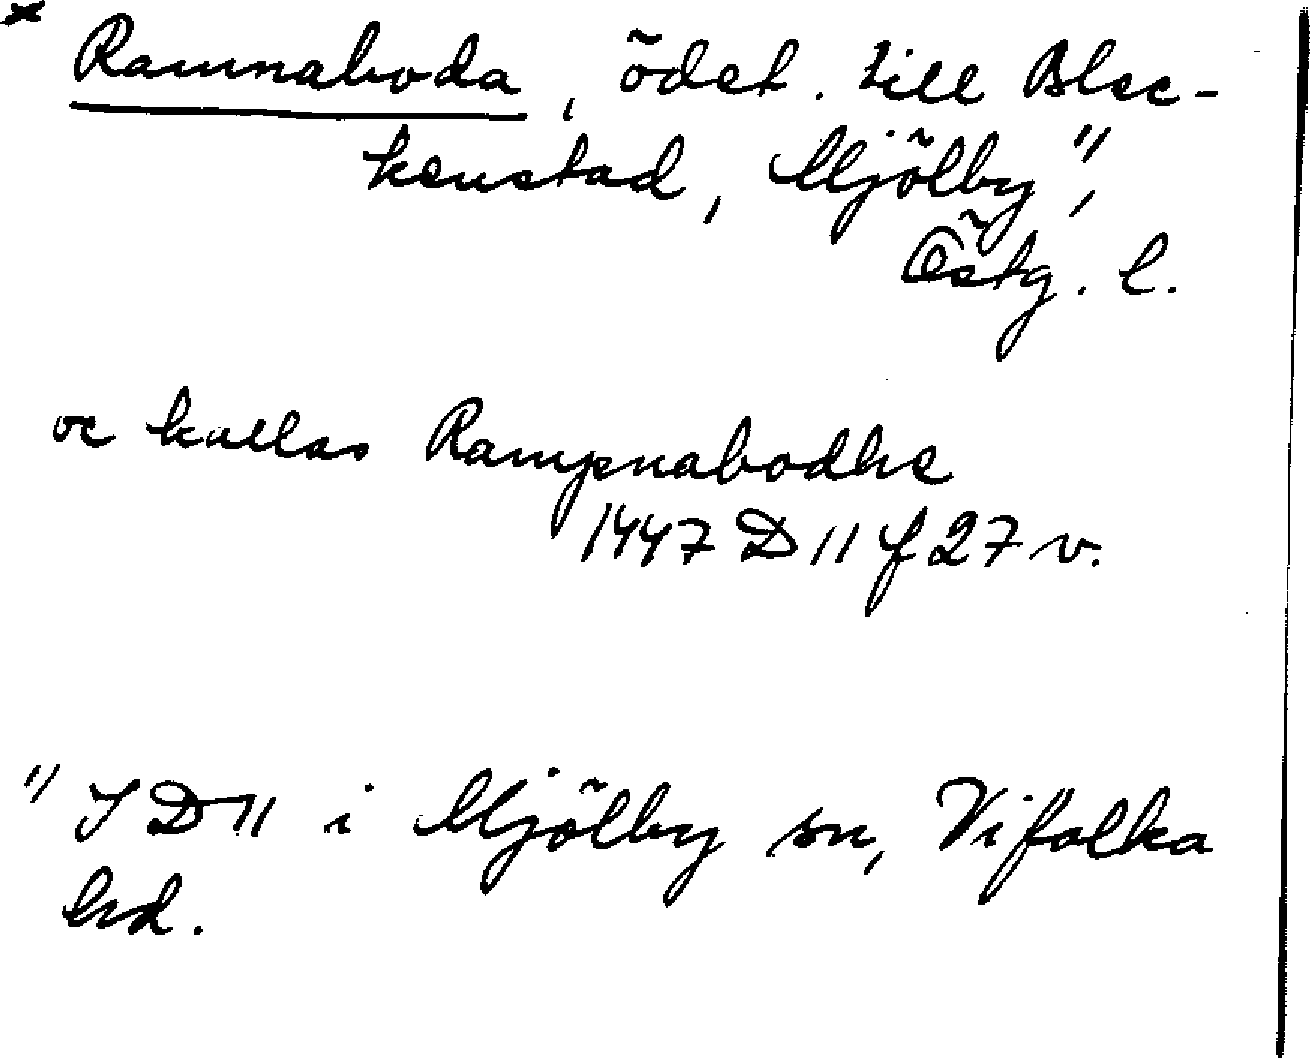 * Ramnaboda, ödet. till Blec-
kenstad, Mjölby¹⁾,
Östg. l.
oc kallas Rampnabodhe
1447 D 11 f 27 v.
¹⁾ I D 11 i Mjölby sn, Vifolka
hd.